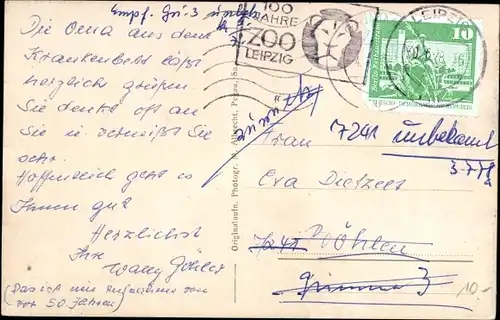 Empf.
Die Oma aus dem
Krankenbett läßt
herzlich grüßen
Sie denkt oft an
Sie u. vermißt Sie
sehr.
Hoffentlich geht es
Ihnen gut
Herzlichst
Ihre
Wally
(Das ist eine Aufnahme von
vor 50 Jahren)
100
JAHRE
ZOO
LEIPZIG
LEIPZIG
10
Originalaufn. Photogr. M. Albrecht, Pegau, Sa.
zurück
7241 unbekannt
Frau
Eva Dietzel
Böhlen
Grimma 3
10.-